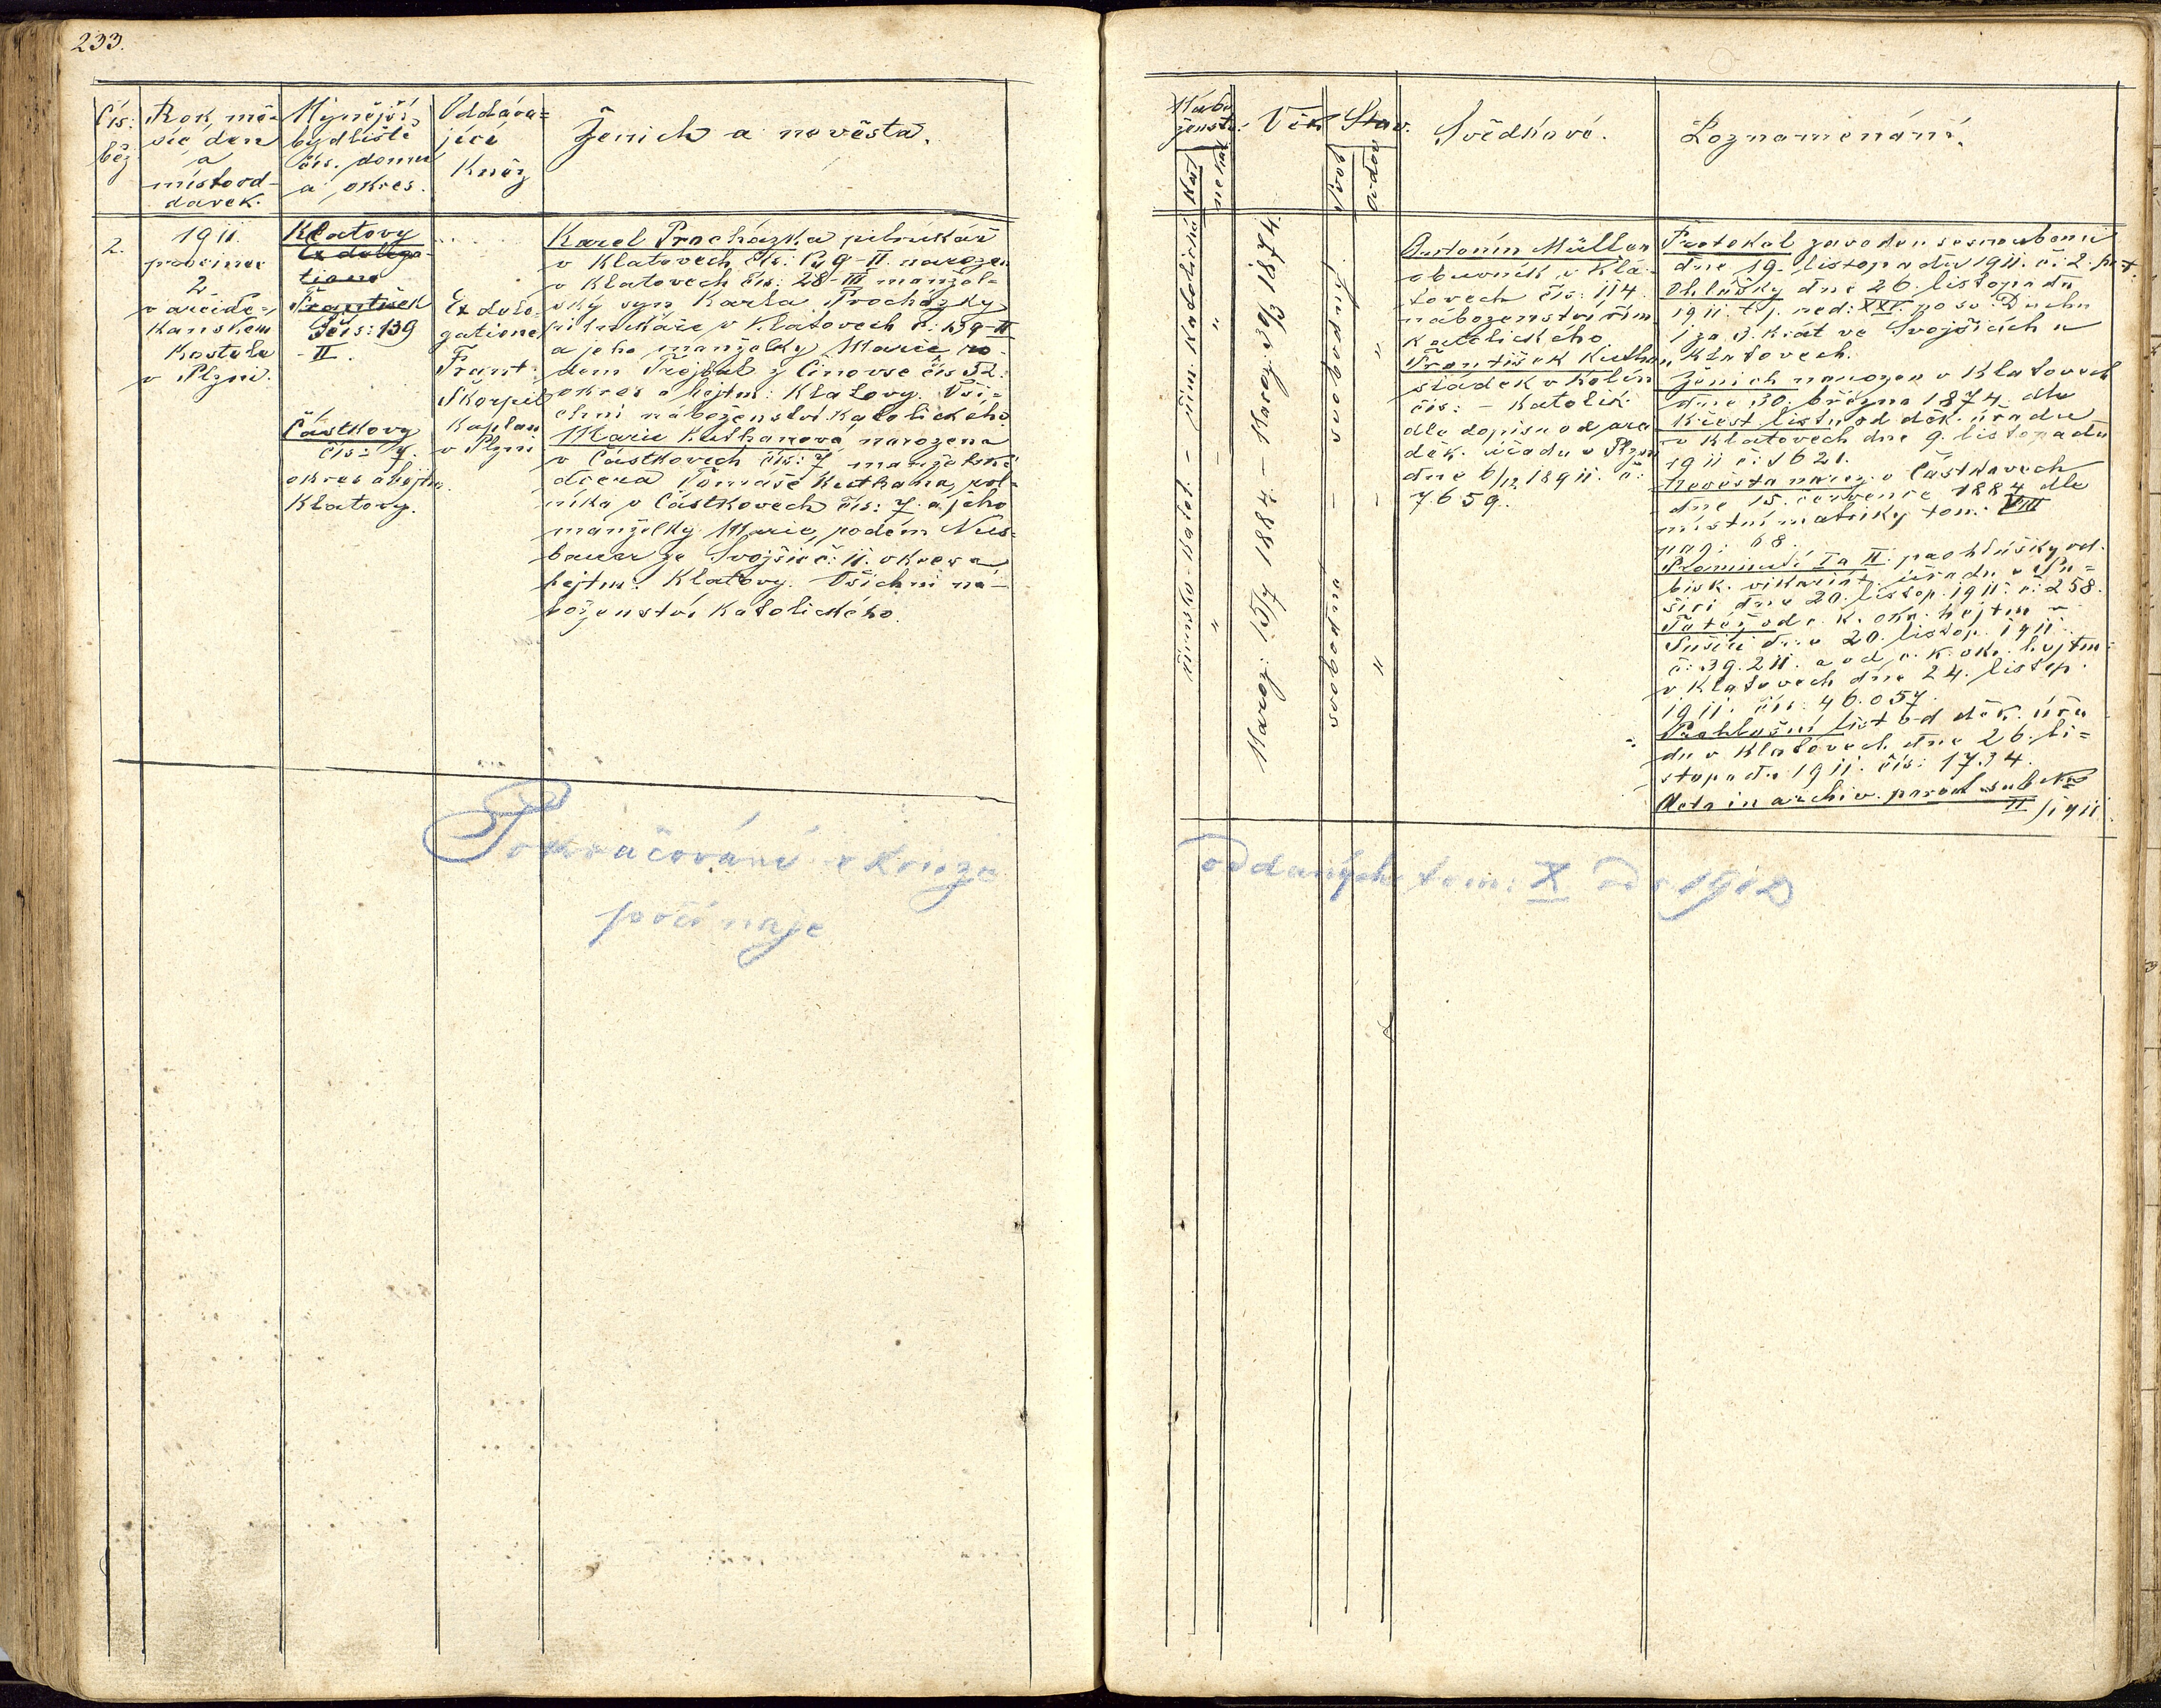 233.
Čís:
běž
Rok, mě-
síc, den
a
místo od-
davek.
Nynější
bydliště
čís. domu
a okres.
Oddáva=
jící
Kněz
Ženich a nevěsta.
2.
1911.
prosince
2.
v arcidě-
kanském
kostele
v Plzni.
Klatovy
Ex delega-
tione
František
čís: 139
- II.
Částkovy
čís: 7.
okres a hejtm.
Klatovy.
Ex dele-
gatione
Frant.
Škorpil
kaplan
v Plzni
Karel Procházka pilnikář
v Klatovech čís: 139-II. narozen
v Klatovech čís: 28-III manžel-
ský syn Karla Procházky
pilnikáře v Klatovech č: 139-II
a jeho manželky Marie ro-
dem Trojan z Činovse čís 52.
okres a hejtm: Klatovy. Vši-
chni náboženství katolického.
Marie Kuthanova narozena
v Částkovech čís: 7 manželská
dcera Tomáše Kuthana, rol-
níka v Částkovech čís: 7. a jeho
manželky Marie, rodem Nus-
bauer ze Svojšic č: 11. okres a
hejtm. Klatovy. Všichni ná-
boženství katolického.
Pokračování v knize
počínaje
Nábo
ženstv.
Věk
Stav.
Svědkové.
Poznamenání.
řím. katolická
Karel: 30/3 1874.
svobodný
Marie: 15/7 1884
svobodná
Antonín Müller
obuvník v Kla-
tovech čís: 114
náboženství řím.
katolického
František Kuthan
sládek v Kolín
čís: - katolík
dle dopisu od arci
děk. úřadu v Plzni
dne 6/12 1911. č:
7659.
Protokol zaveden o snoubení
dne 19. listopadu 1911. č: 2. pr.
Ohlášky dne 26. listopadu
1911. t. j. ned: XXV. po sv. Duchu
1 za 3. krát ve Svojšicích a
v Klatovech.
Ženich narozen v Klatovech
dne 30. března 1874. dle
Křest. listu od děk. úřadu
v Klatovech dne 9. listopadu
1911 č: 1621.
Nevěsta naroz. v Částkovech
dne 15. července 1884 dle
místní matriky tom: VIII
pag: 68.
Prominutí I a II: prohlášky od.
bisk. vikariát. úřadu v Su=
šici dne 20. listop. 1911. č: 258.
Tatéž od c. k. okr. hejtm v
Sušici dne 20. listop. 1911.
č: 39.211. a od c. k. okr. hejtm.
v Klatovech dne 24. listop.
1911. čís: 46.057.
Prohlašní list od děk. úřa
du v Klatovech dne 26. li=
stopadu 1911. čís: 1734.
Acta in archiv. paroch sub No
II / 1911.
oddaných tom: X od r 1912